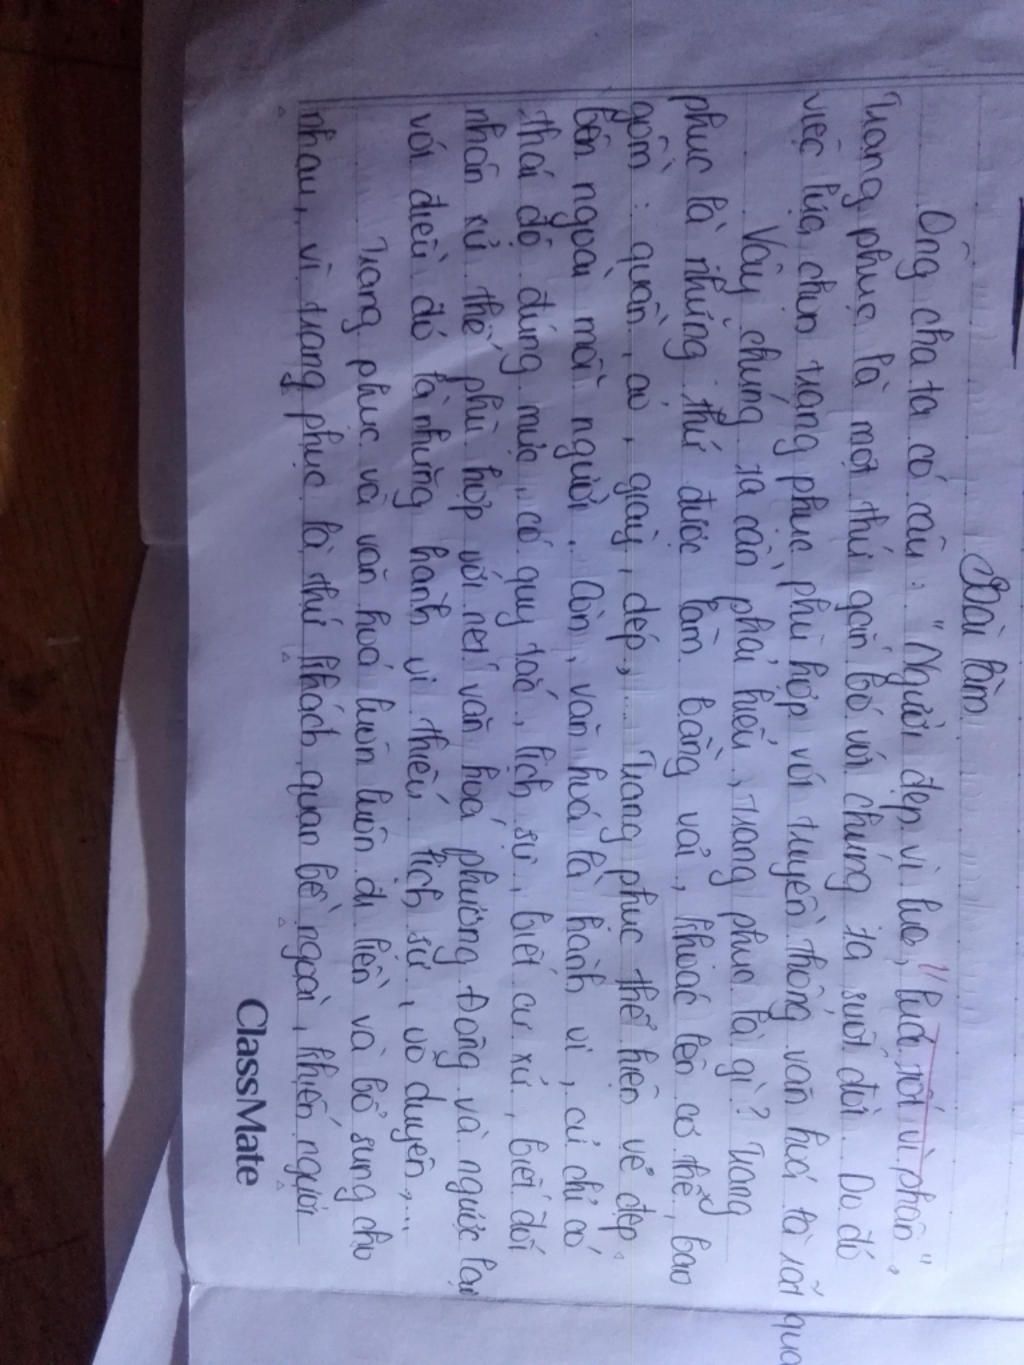 Bài làm
Ông cha ta có câu: "Người đẹp vì lụa, lúa tốt vì phân",
Trang phục là một thứ gắn bó với chúng ta suốt đời. Do đó
việc lựa chọn trang phục phù hợp với truyền thống văn hoá là rất qua
Vậy chúng ta cần phải hiểu, trang phục là gì? Trang
phục là những thứ được làm bằng vải, khoác lên cơ thể, bao
gồm: quần, áo, giày, dép,... Trang phục thể hiện vẻ đẹp
bên ngoài mỗi người. Còn, văn hoá là hành vi, cử chỉ có
thái độ đúng mực, có quy tắc, lịch sự, biết cư xử, biết đối
nhân xử thế, phù hợp với nét văn hoá phương Đông và ngược lại
với điều đó là những hành vi thiếu lịch sự, vô duyên,...
Trang phục và văn hoá luôn luôn đi liền và bổ sung cho
nhau, vì trang phục là thứ khách quan bề ngoài, khiến người
ClassMate